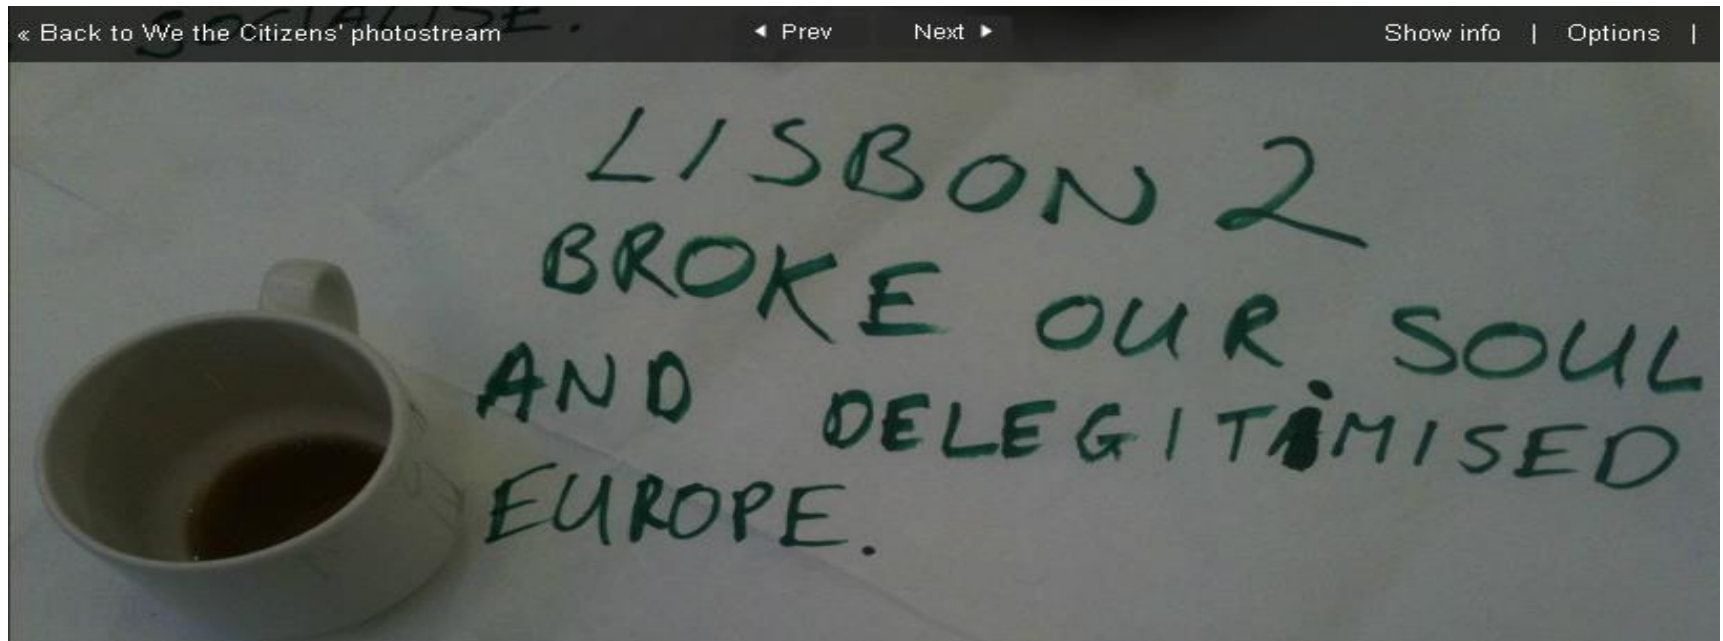 « Back to We the Citizens' photostream ◄ Prev Next ► Show info | Options |
SOCIALISE.
LISBON 2
BROKE OUR SOUL
AND DELEGITIMISED
EUROPE.